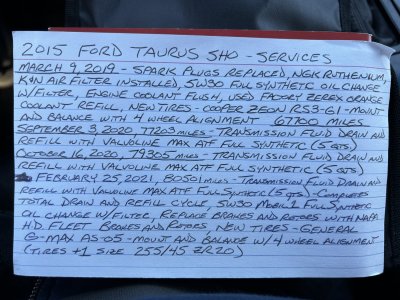 2015 FORD TAURUS SHO - SERVICES
MARCH 9, 2019 - SPARK PLUGS REPLACED, NGK RUTHENIUM,
K&N AIR FILTER INSTALLED, 5W30 FULL SYNTHETIC OIL CHANGE
W/FILTER, ENGINE COOLANT FLUSH, USED FACTORY ZEREX ORANGE
COOLANT REFILL, NEW TIRES - COOPER ZEON RS3-G1 - MOUNT
AND BALANCE WITH 4 WHEEL ALIGNMENT 67700 MILES
SEPTEMBER 3, 2020, 77203 MILES - TRANSMISSION FLUID DRAIN AND
REFILL WITH VALVOLINE MAX ATF FULL SYNTHETIC (5 QTS)
OCTOBER 16, 2020, 79305 MILES - TRANSMISSION FLUID DRAIN AND
REFILL WITH VALVOLINE MAX ATF FULL SYNTHETIC (5 QTS)
FEBRUARY 25, 2021, 80501 MILES - TRANSMISSION FLUID DRAIN AND
REFILL WITH VALVOLINE MAX ATF FULL SYNTHETIC (5 QTS) - COMPLETES
TOTAL DRAIN AND REFILL CYCLE, 5W30 MOBIL 1 FULL SYNTHETIC
OIL CHANGE W/FILTER, REPLACE BRAKES AND ROTORS WITH NAPA
H.D. FLEET BRAKES AND ROTORS, NEW TIRES - GENERAL
G-MAX AS-05 - MOUNT AND BALANCE W/ 4 WHEEL ALIGNMENT
(TIRES +1 SIZE 255/45 ZR20)